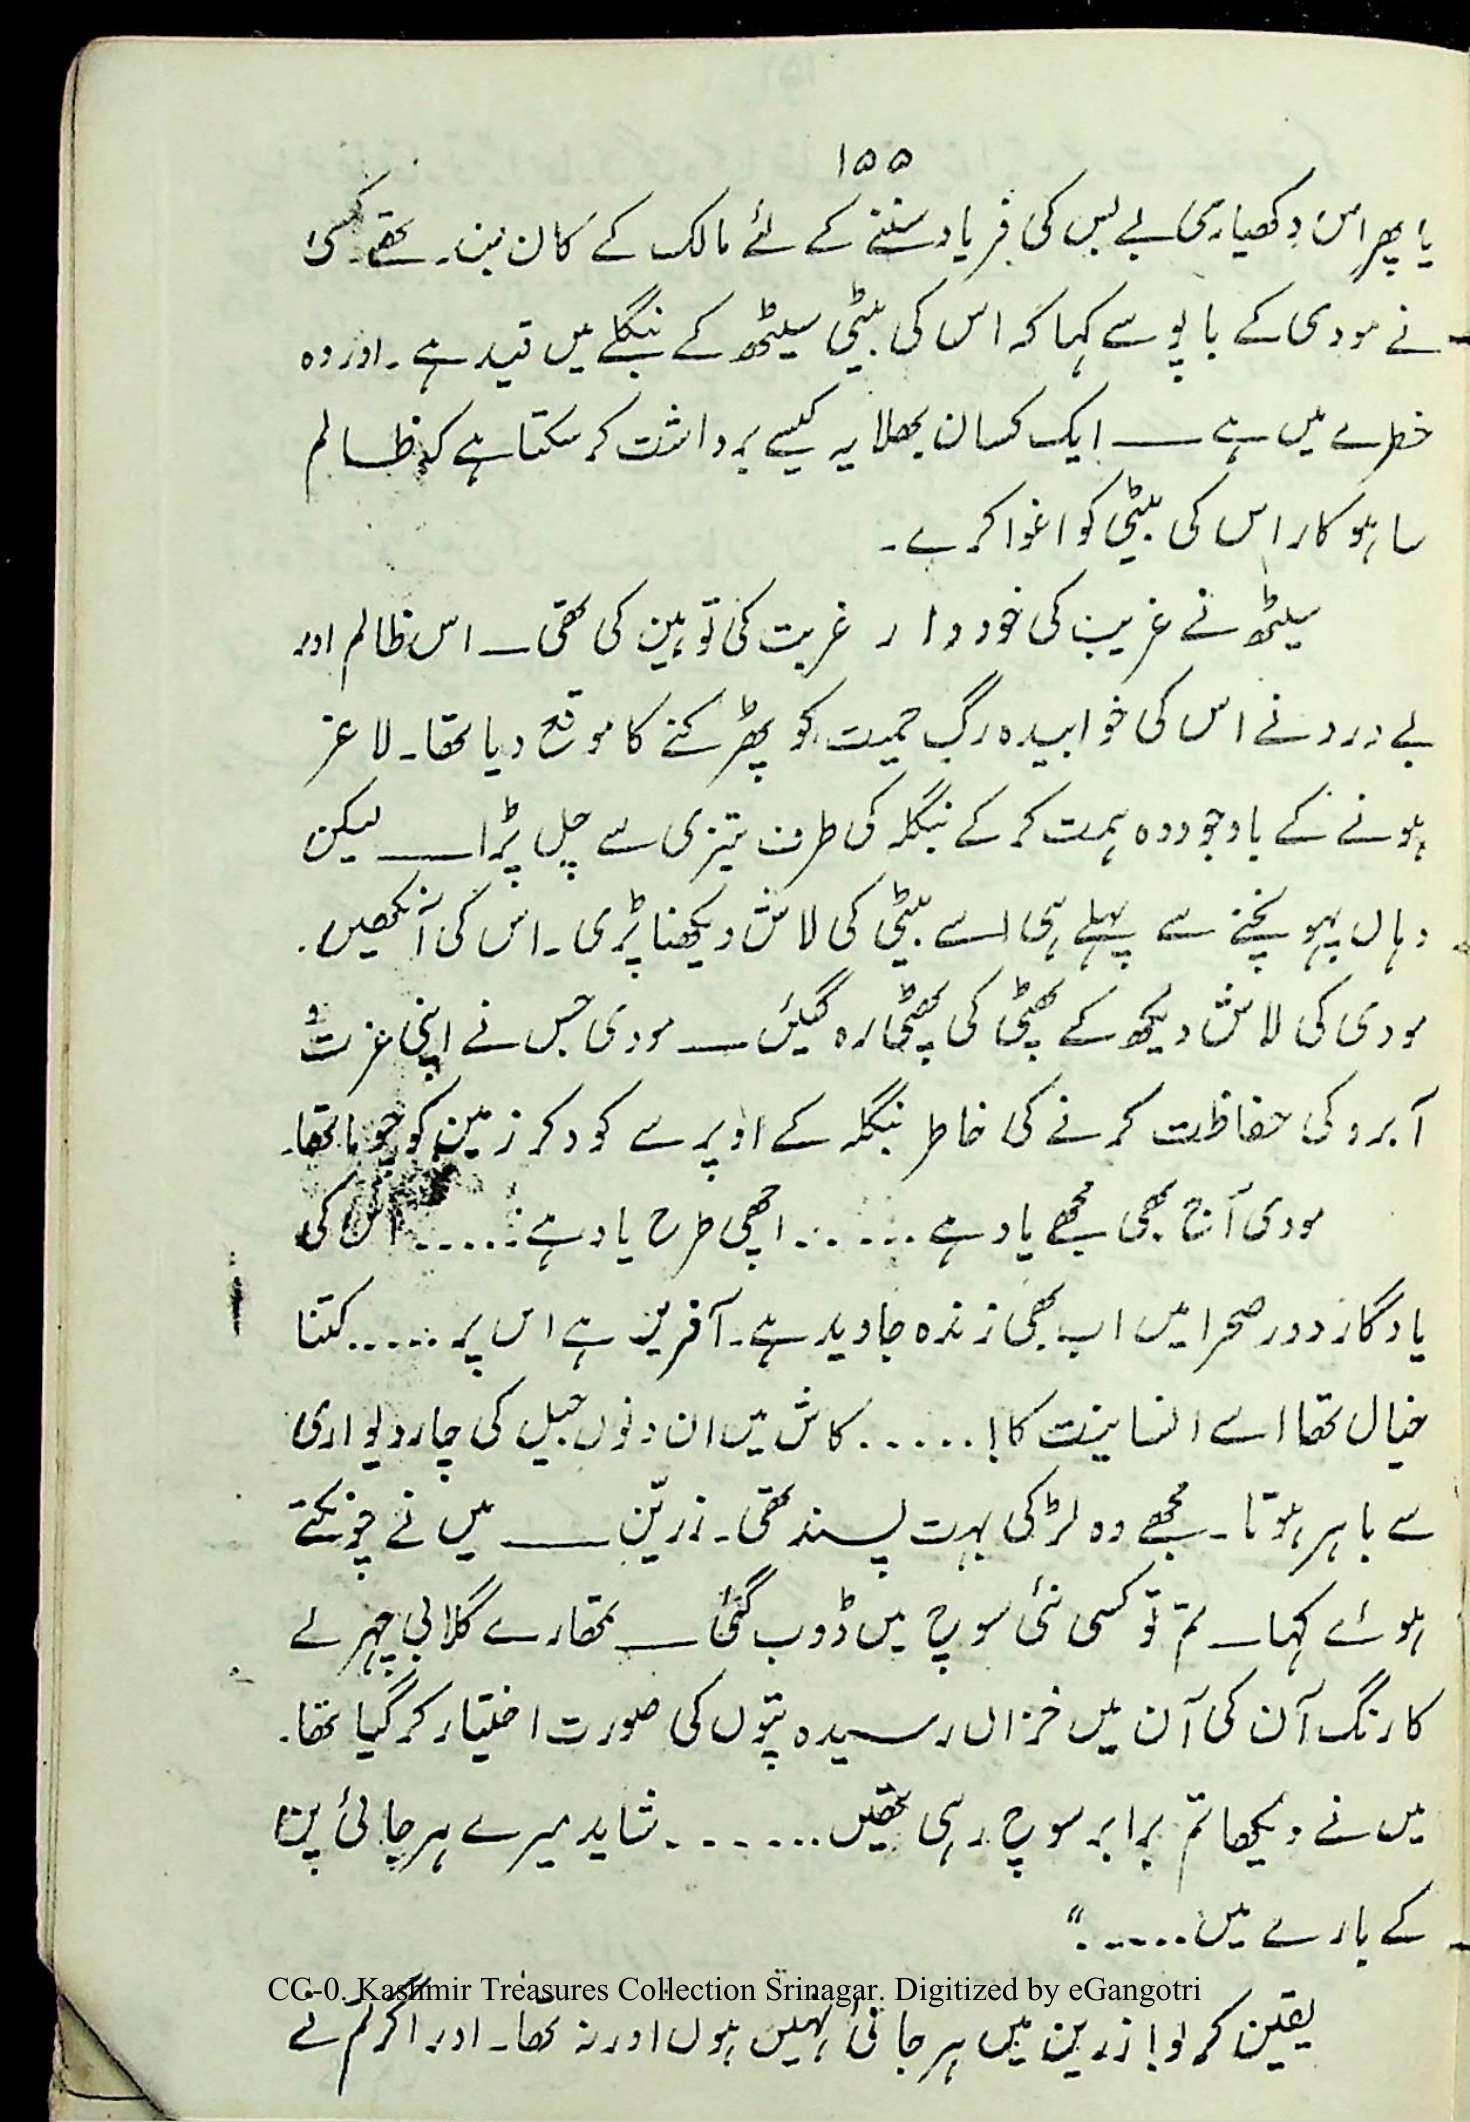 ۱۵۵
یا پھر اس دکھیاری بے بس کی فریاد سننے کے لئے مالک کے کان بند تھے۔ کسی
نے مودی کے باپو سے کہا کہ اس کی بیٹی سیٹھ کے بنگلے میں قید ہے۔ اور وہ
خطرے میں ہے ــــ ایک کسان بھلا یہ کیسے برداشت کر سکتا ہے کہ ظالم
ساہوکار اس کی بیٹی کو اغوا کرے۔
سیٹھ نے غریب کی خوددار غربت کی توہین کی تھی ــ اس ظالم اور
بے درد نے اس کی خوابیدہ رگِ حمیت کو پھڑکنے کا موقع دیا تھا۔ لاغر
ہونے کے باوجود وہ ہمت کر کے بنگلہ کی طرف تیزی سے چل پڑا ــــ لیکن
وہاں پہونچنے سے پہلے ہی اسے بیٹی کی لاش دیکھنا پڑی۔ اس کی آنکھیں.
مودی کی لاش دیکھ کے پھٹی کی پھٹی رہ گیئں ــــ مودی جس نے اپنی عزت و
آبرو کی حفاظت کرنے کی خاطر بنگلہ کے اوپر سے کود کر زمین کو چوما تھا۔
مودی آج بھی مجھے یاد ہے ...... اچھی طرح یاد ہے ...... اس کی
یادگار دور صحرا میں اب بھی زندہ جاوید ہے۔ آفرین ہے اس پر ..... کتنا
خیال تھا اسے انسانیت کا! ...... کاش میں ان دنوں جیل کی چاردیواری
سے باہر ہوتا۔ مجھے وہ لڑکی بہت پسند تھی۔ زریّن ــــ میں نے چونکتے
ہوئے کہا ــ تم تو کسی نئی سوچ میں ڈوب گئی ــــ تمھارے گلابی چہرے
کا رنگ آن کی آن میں خزاں رسیدہ پتّوں کی صورت اختیار کر گیا تھا۔
میں نے دیکھا تم برابر سوچ رہی تھیں ....... شاید میرے ہرجائی پن
کے بارے میں ......"
CC-0. Kashmir Treasures Collection Srinagar. Digitized by eGangotri
یقین کر لو! زرین میں ہرجائی نہیں ہوں اور نہ تھا۔ اور اگر تم نے